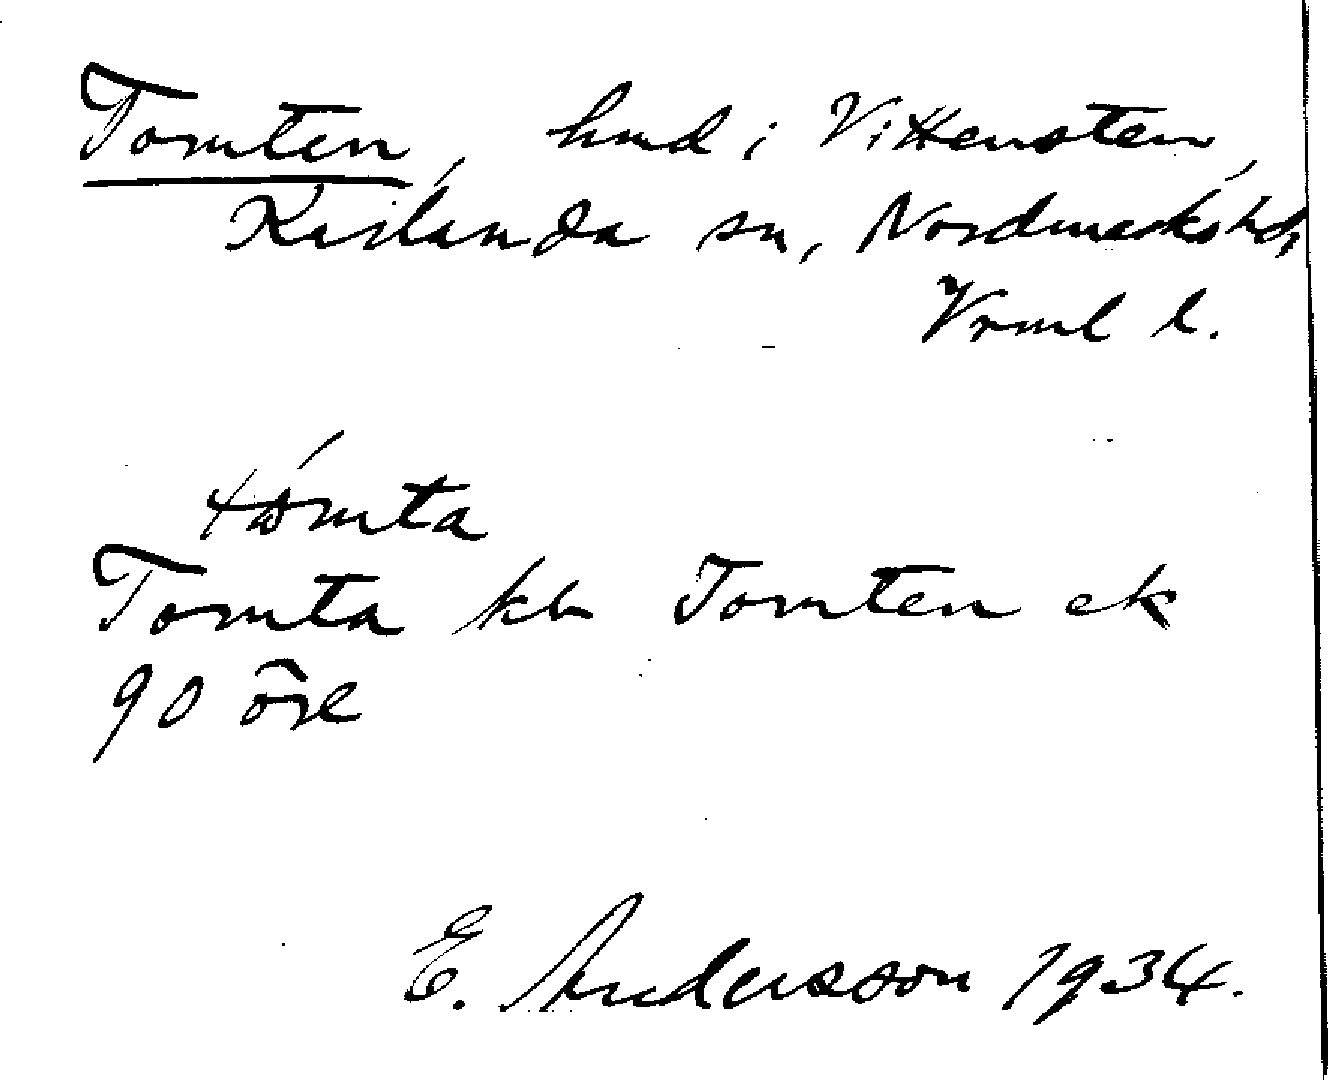 Tomten, hmd i Vittensten,
Karlanda sn, Nordmarks hd,
Vrml l.
tómta
Tomta kb Tomten ek
90 öre
E. Andersson 1934.